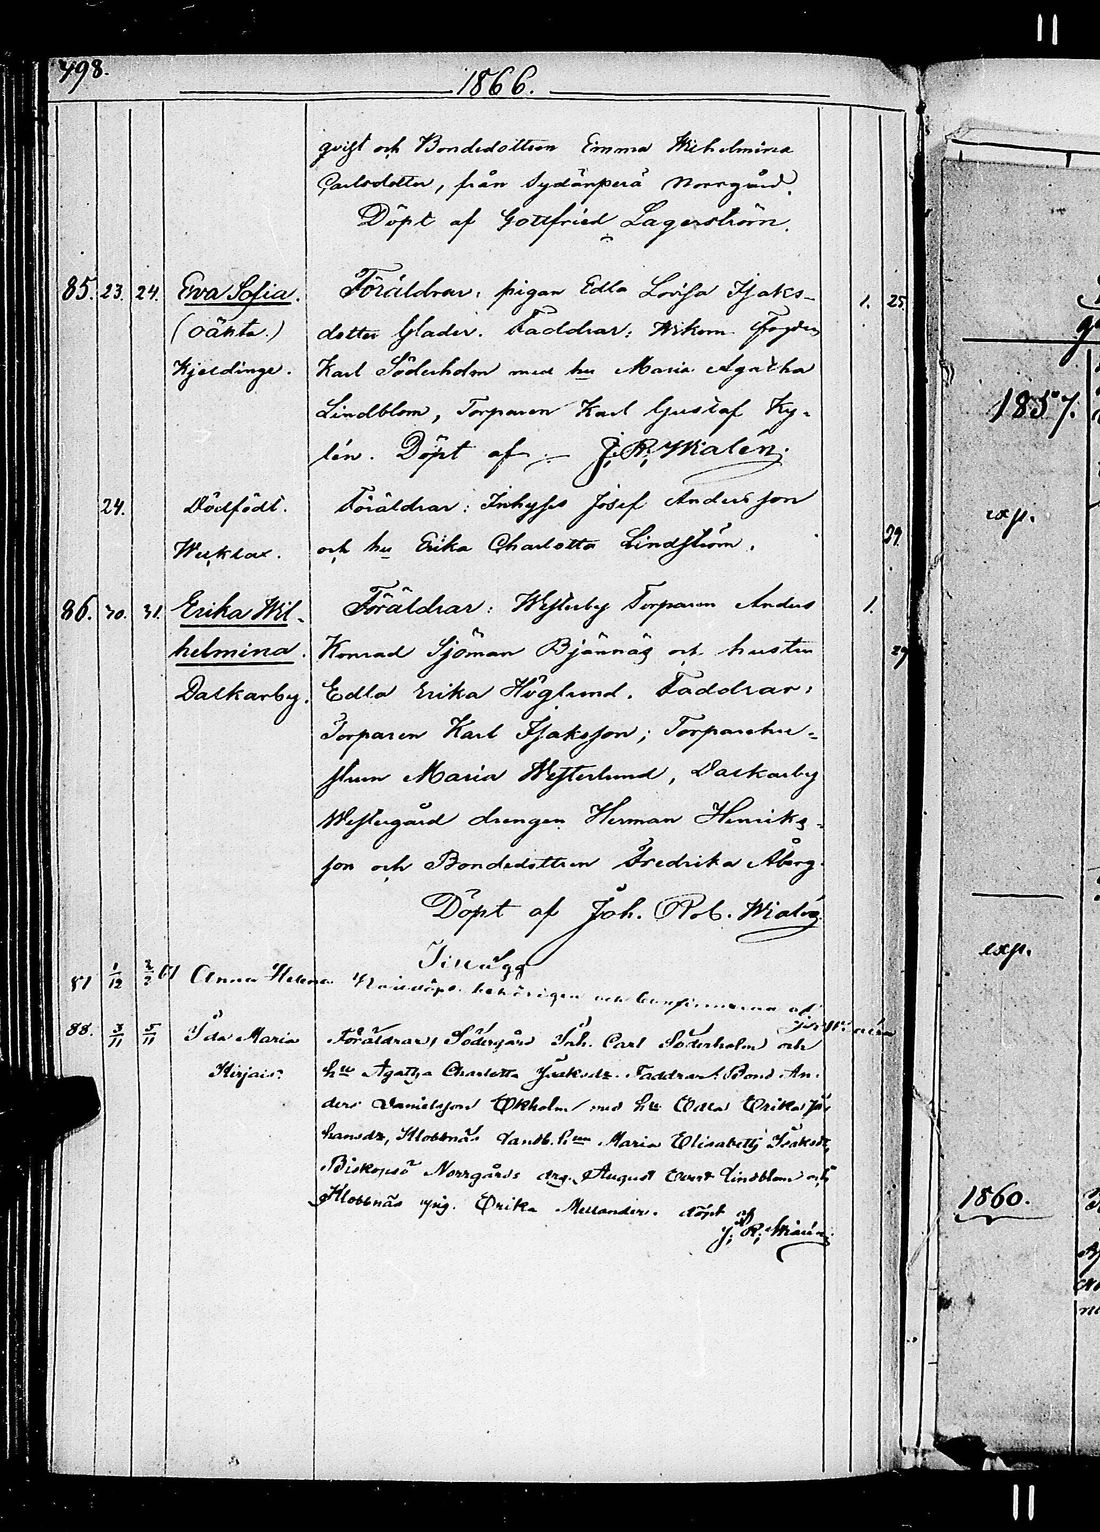 498.
1866.
gvist och Bondedottren Emma Wilhelmina
Carlsdotter, från Sydänperä Norrgård.
Döpt af Gottfried Lagerström.
85. 23. 24. Eva Sofia. Föräldrar: pigan Edla Lovisa Isaks-
(oäkta.) dotter Glader. Faddrar: Wikom Fogden
Kjeldinge. Karl Söderholm med hu Maria Agatha
Lindblom, Torparen Karl Gustaf Ky-
lén. Döpt af J. R. Wialén.
1. 25.
24. Dödfödt. Föräldrar: Inhyses Josef Andersson
och hu Erika Charlotta Lindström.
29
86. 30. 31. Erika Wil- Föräldrar: Westerby Torparen Anders
helmina. Konrad Sjöman Björnnäs och hustru
Dalkarby. Edla Erika Höglund. Faddrar:
Torparen Karl Isaksson; Torparehu-
strun Maria Westerlund, Dalkarby
Westergård drengen Herman Henriks-
son och Bondedottren Fredrika Åberg.
Döpt af Joh. Rob. Wialén
1. 29
Tillägg
1/12 Anna Helena Nöddöpt behörigen och Confirmerad af
88. 3/11 5/11 Ida Maria Föräldrar, Södergård Inh. Carl Söderholm och
Kirjais. hu Agatha Charlotta Isaksdr. Faddrar: Bond. An-
ders Danielsson Ekholm med hu Edla Erika Jo-
hansdr, Klobbnäs Maria Elisabeth Isaksdr,
Biskopsö Norrgårds drg. August Ernst Lindblom och
Klobbnäs pig. Erika Mellander. döpt af
J. R. Wialén
1857.
exp.
exp.
1860.